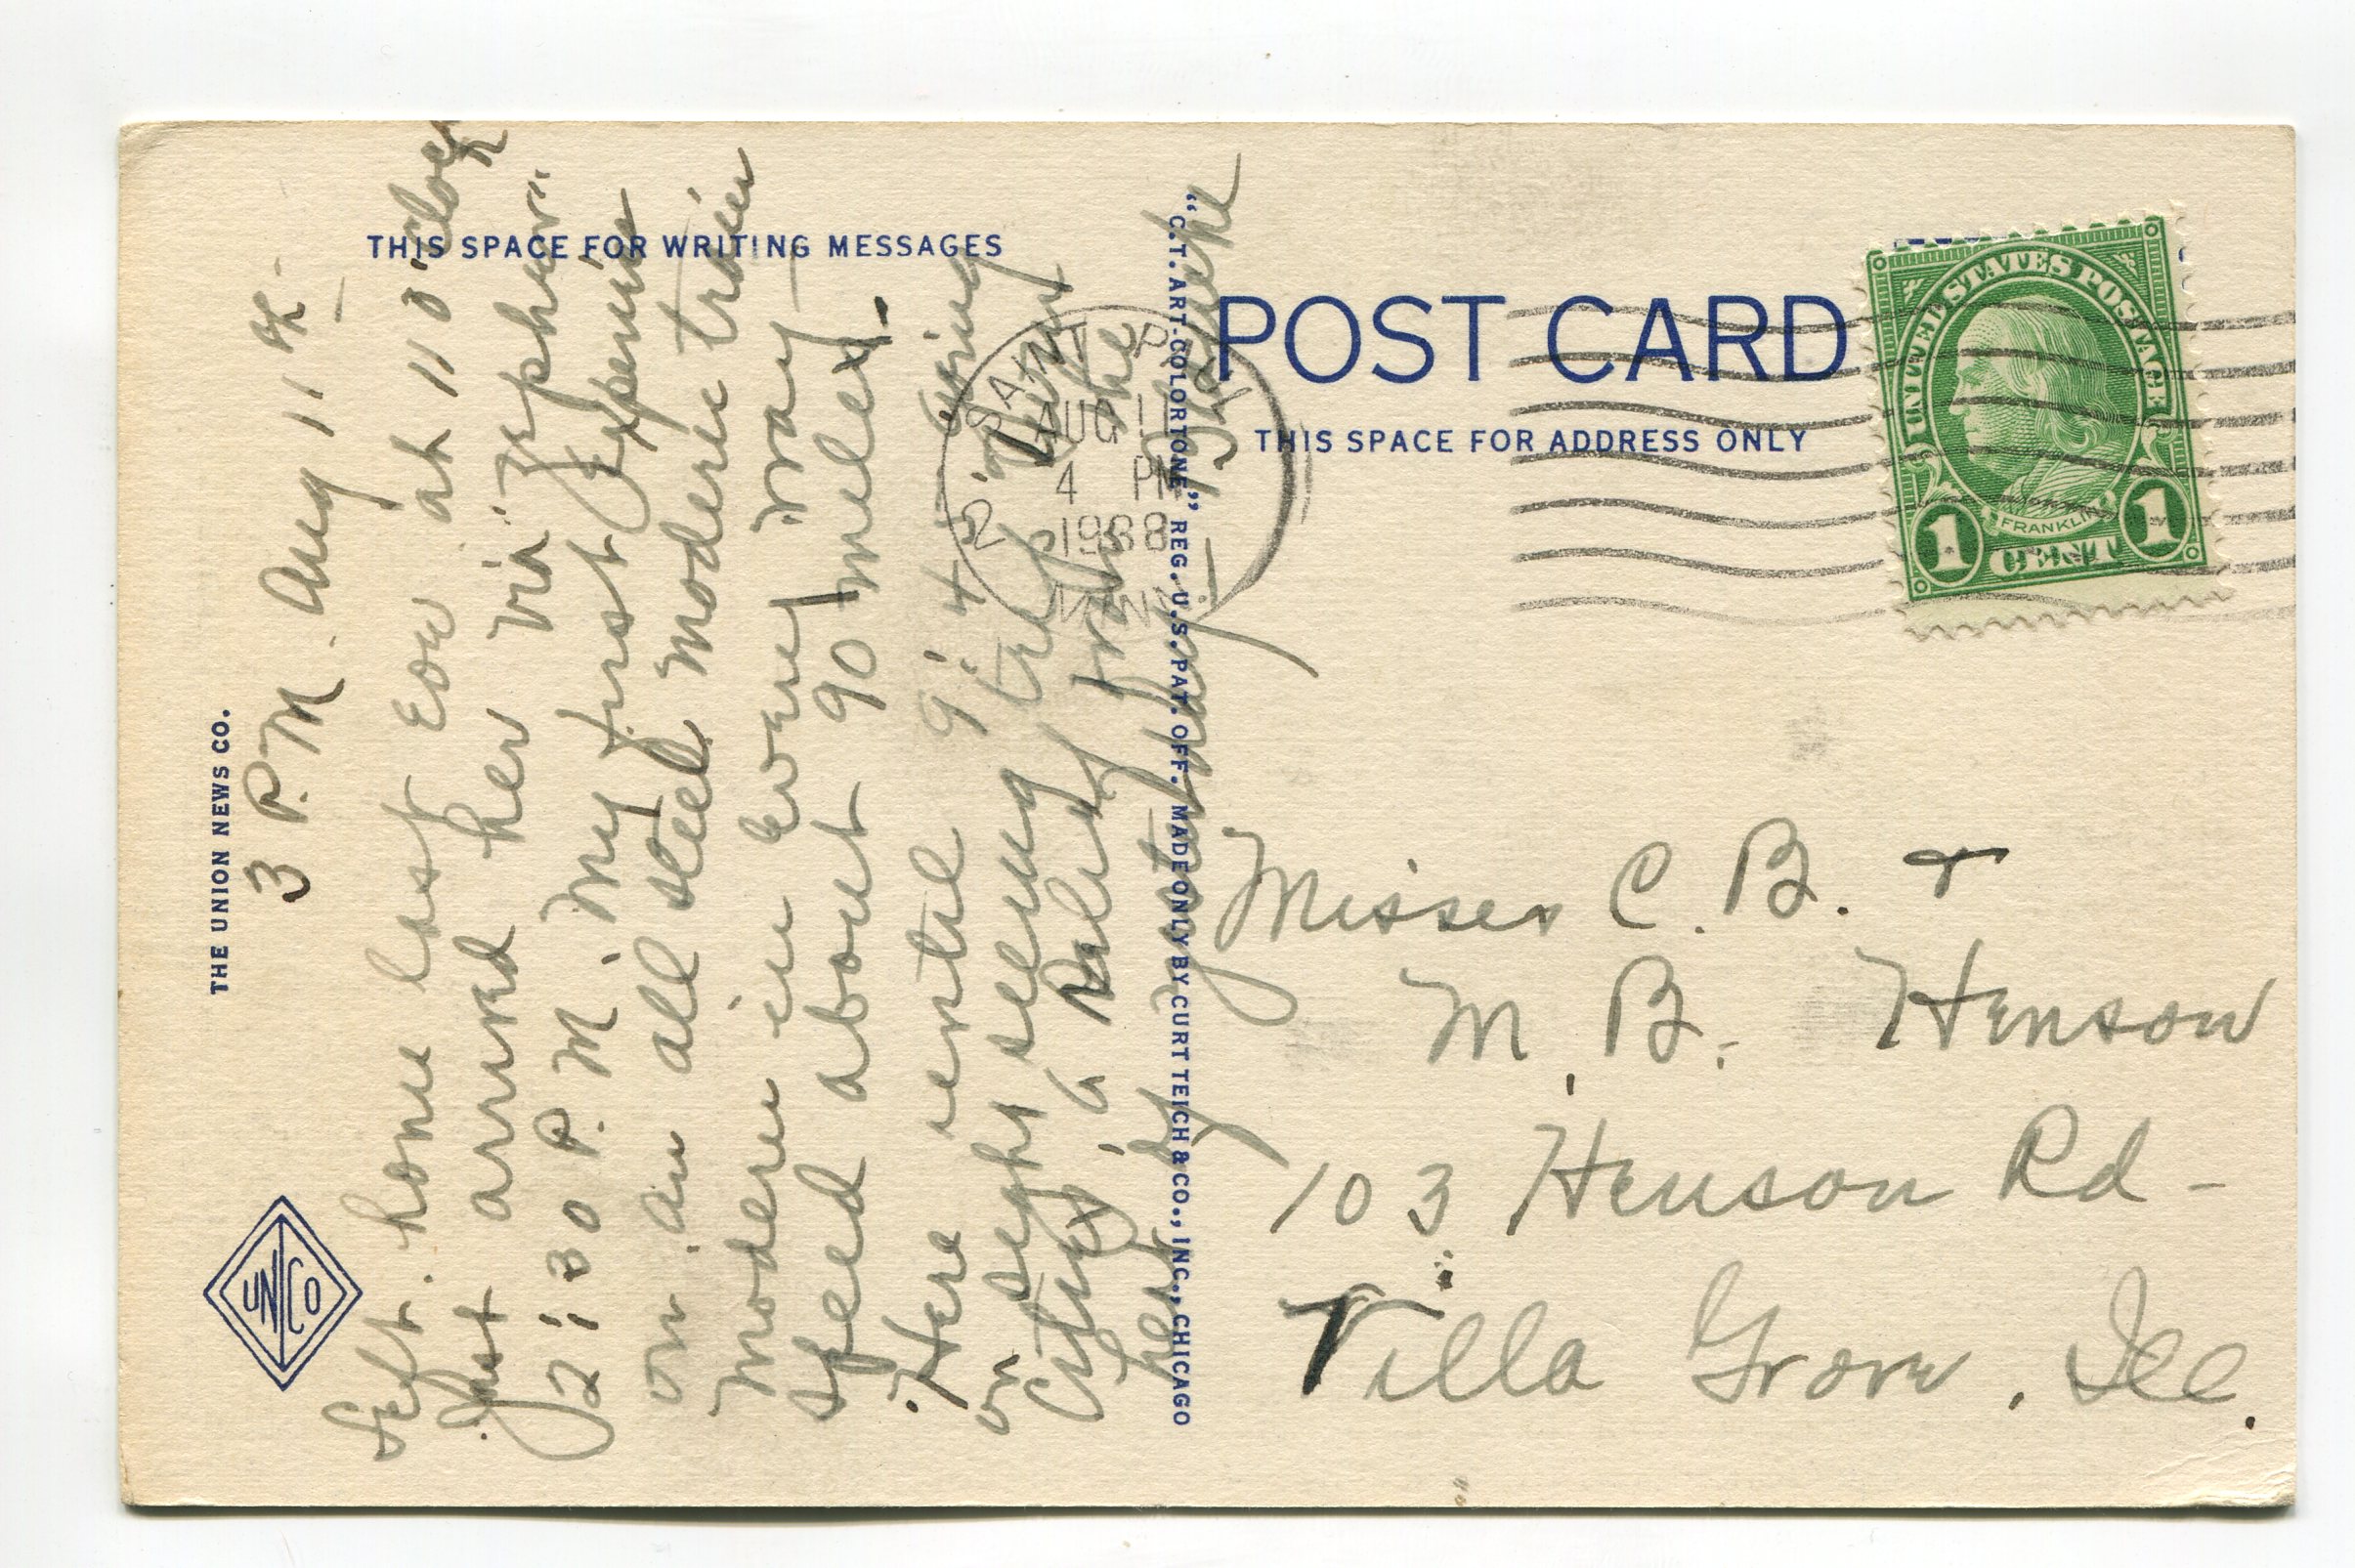 THE UNION NEWS CO.
UNICO
THIS SPACE FOR WRITING MESSAGES
3 P.M. Aug 11th -
Left home last Eve at 11 o'clock
Just arrived her via Zephyer.
2:30 P.M. My first Experience
on an all steel moderne train
modern in every way —
speed about 90 miles.
Here until 9:45
on seeing trip
Cities, a Relief from the
heat yesterday —
"C.T. ART-COLORTONE" REG. U.S. PAT. OFF. MADE ONLY BY CURT TEICH & CO., INC., CHICAGO
POST CARD
THIS SPACE FOR ADDRESS ONLY
SAINT PAUL
AUG 11
4 PM
2 1938
MINN.
UNITED STATES POSTAGE
FRANKLIN
1 CENT 1
Misses C. B. &
M. B. Henson
103 Henson Rd -
Villa Grove, Ill.